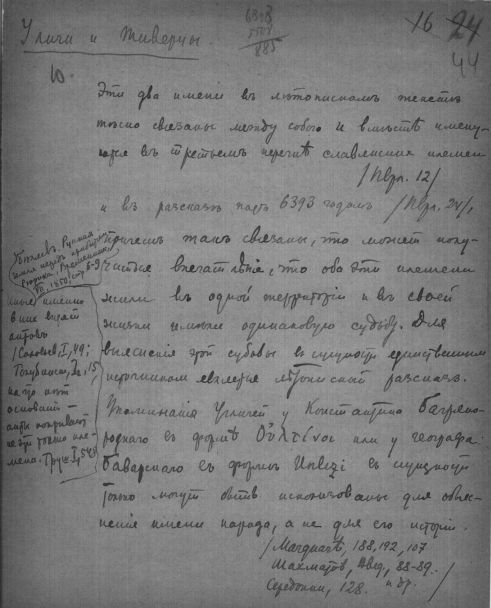 Уличи и Тиверцы.
6393
5508
885
16 24
44
10.
Эти два имени въ лѣтописномъ текстѣ
тѣсно связаны между собою и вмѣстѣ имену-
ются въ третьемъ перечнѣ славянскихъ племенъ
/Ипрл. 12/
и въ разсказѣ подъ 6393 годомъ /Ипрл. 24/,
причемъ такъ связаны, что можетъ полу-
читься впечатлѣніе, что оба эти племени
жили въ одной территоріи и въ своей
жизни имѣли одинаковую судьбу. Для
выясненія этой судьбы въ сущности единственнымъ
источникомъ является лѣтописный разсказъ.
Упоминанія Угличей у Константина Багряно-
роднаго въ формѣ Οὐλτίνοι или у географа
Баварскаго въ формѣ Unlizi въ сущности
только могутъ быть использованы для объяс-
ненія имени народа, а не для его исторіи.
/Marquart, 188, 192, 107
Шахматовъ, Введ., 88-89.
Середонинъ, 128. и др.
Бѣляевъ, Русская
земля передъ прибытіемъ
Рюрика. Временникъ
VIII, 1850, стр. 6-9
иные именно
въ нихъ видятъ
антовъ
/Соловьев, I, 49;
Голубинск., 15,
на что нѣтъ
основаній -
анты покрываютъ
не эти только пле-
мена. Груш. I, 548